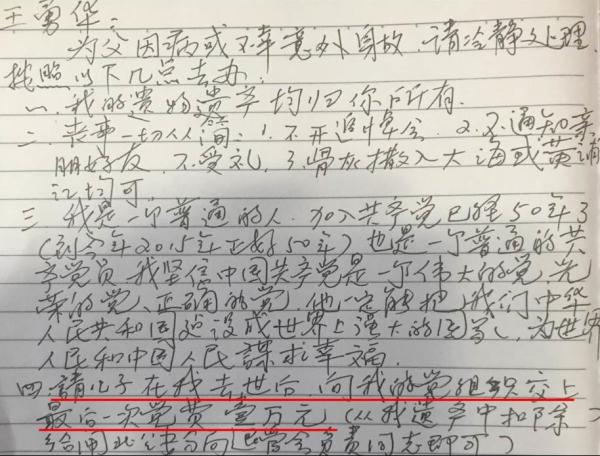 王勇华:
为父因病或不幸意外身故.请冷静处理.
按照以下几点去办:
一、我的遗物资产均归你所有.
二、丧事一切从简:1.不开追悼会.2.不通知亲
朋好友.不受礼.3.骨灰撒入大海或黄浦
江均可.
三、我是一个普通的人.加入共产党已经50年了
(到今年2015年正好50年)也是一个普通的共
产党员.我坚信中国共产党是一个伟大的党、光
荣的党、正确的党.他一定能把我们中华
人民共和国建设成世界上强大的国家、为世界
人民和中国人民謀求幸福.
四.請儿子在我去世后.向我的党组织交上
最后一次党费壹万元(从我遗产中扣除)
给闸北
负责同志即可)